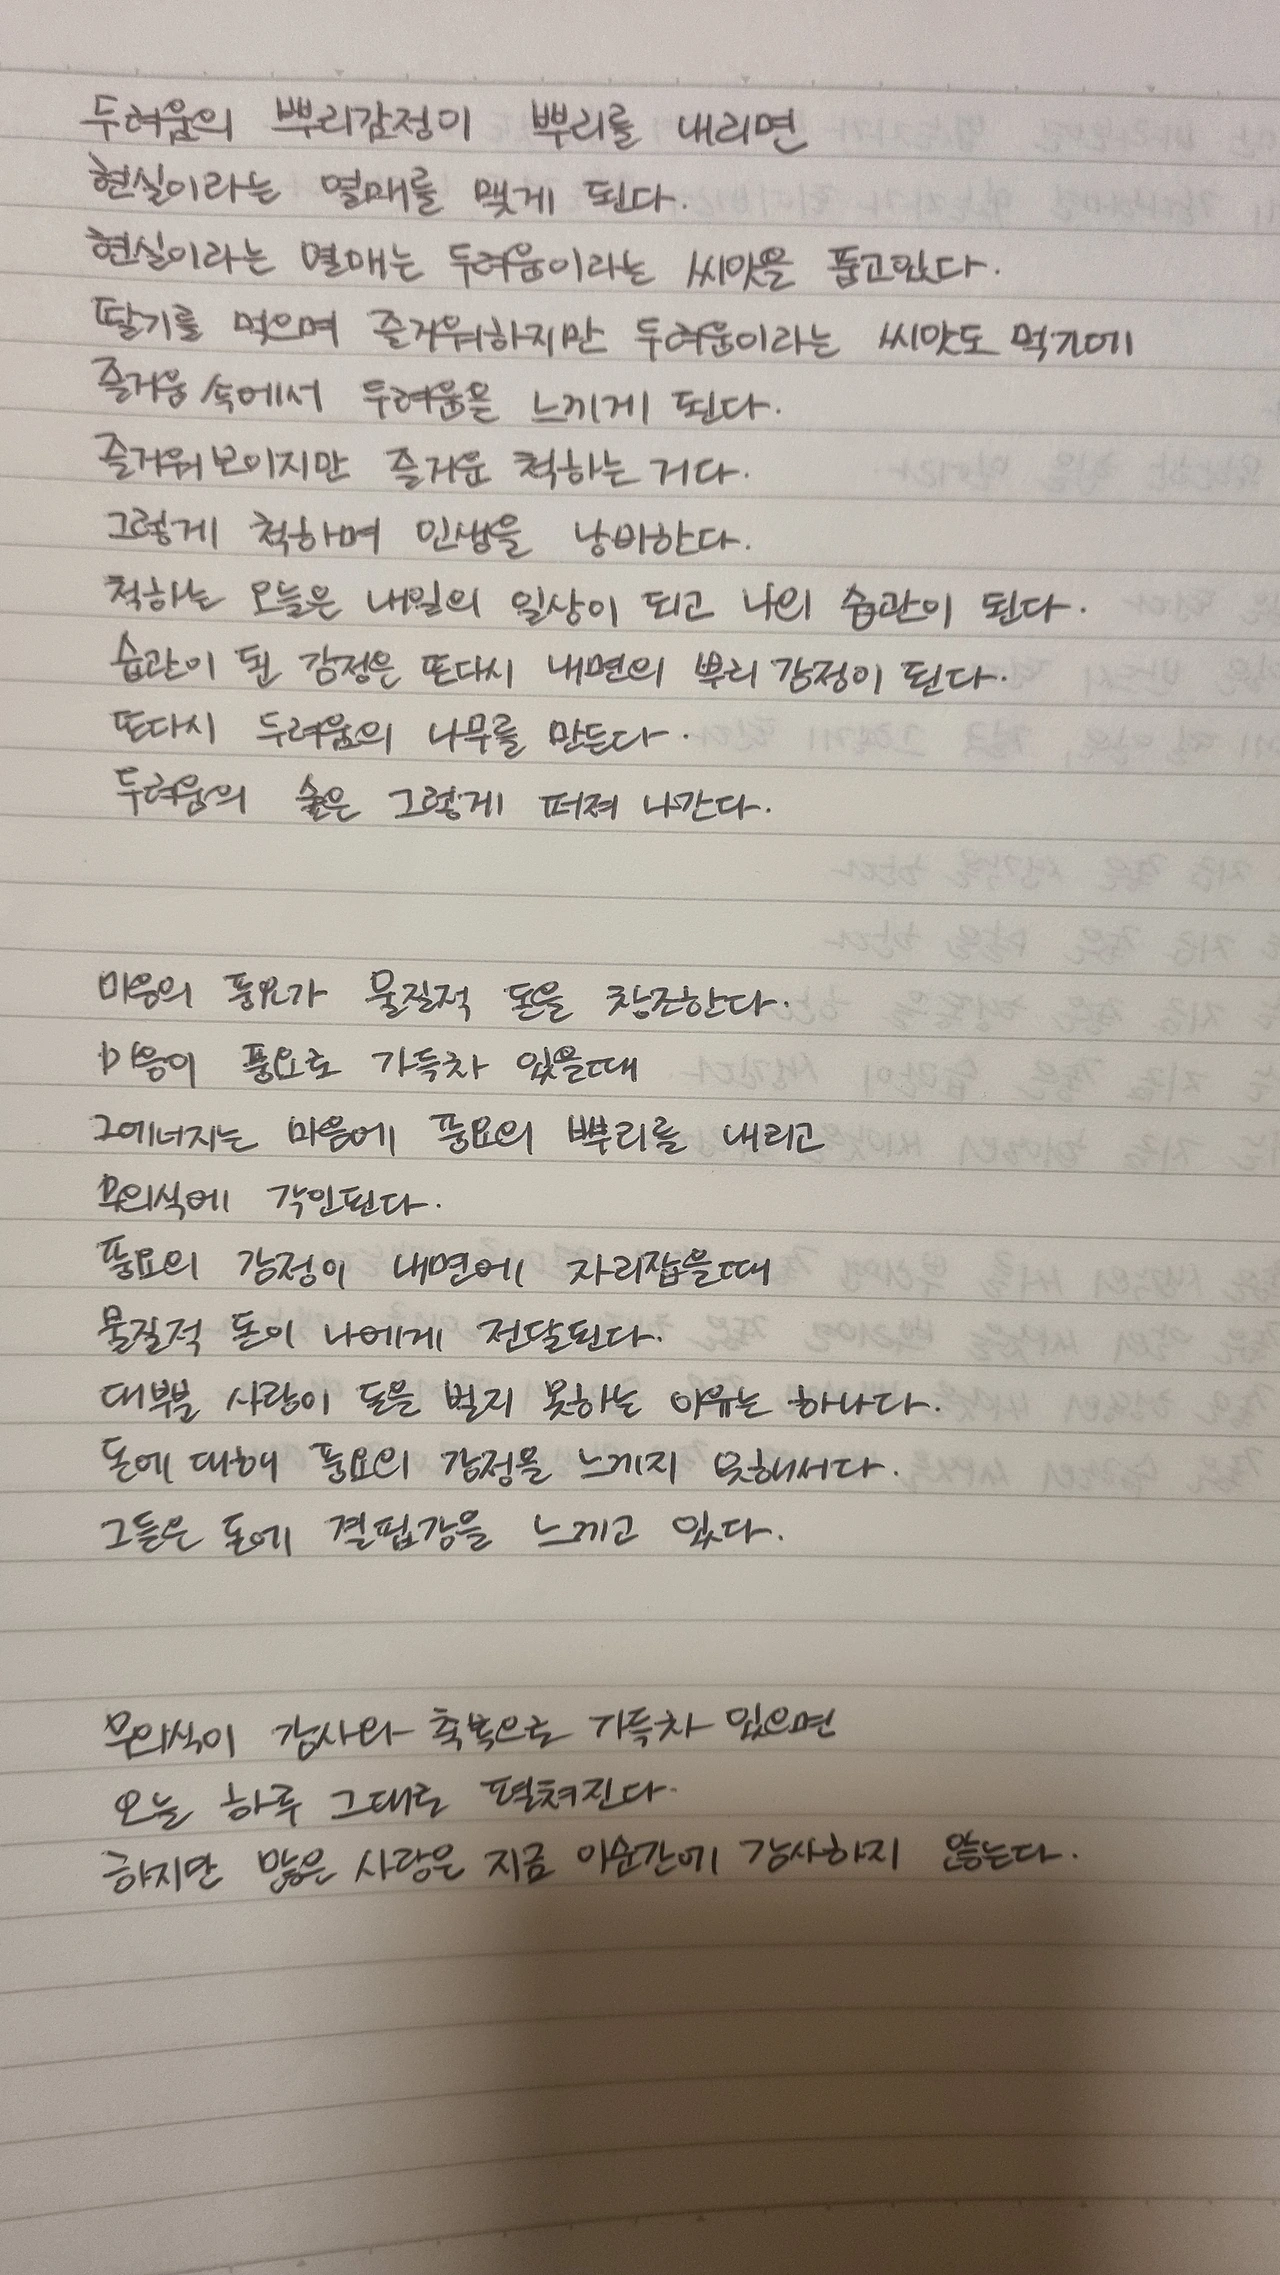 두려움의 뿌리감정이 뿌리를 내리면
현실이라는 열매를 맺게 된다.
현실이라는 열매는 두려움이라는 씨앗을 품고있다.
딸기를 먹으며 즐거워하지만 두려움이라는 씨앗도 먹기에
즐거움 속에서 두려움을 느끼게 된다.
즐거워보이지만 즐거운 척하는 거다.
그렇게 척하며 인생을 낭비한다.
척하는 오늘은 내일의 일상이 되고 나의 습관이 된다.
습관이 된 감정은 또다시 내면의 뿌리 감정이 된다.
또다시 두려움의 나무를 만든다.
두려움의 숲은 그렇게 퍼져 나간다.
마음의 풍요가 물질적 돈을 창조한다.
마음이 풍요로 가득차 있을때
그에너지는 마음에 풍요의 뿌리를 내리고
무의식에 각인된다.
풍요의 감정이 내면에 자리잡을때
물질적 돈이 나에게 전달된다.
대부분 사람이 돈을 벌지 못하는 이유는 하나다.
돈에 대해 풍요의 감정을 느끼지 못해서다.
그들은 돈에 결핍감을 느끼고 있다.
무의식이 감사와 축복으로 가득차 있으면
오늘 하루 그대로 펼쳐진다.
하지만 많은 사람은 지금 이순간에 감사하지 않는다.